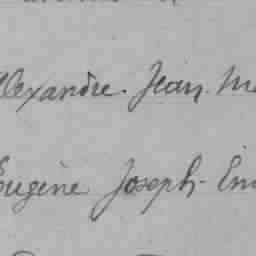 Alexandre. Jean. M
Eugène Joseph-Em